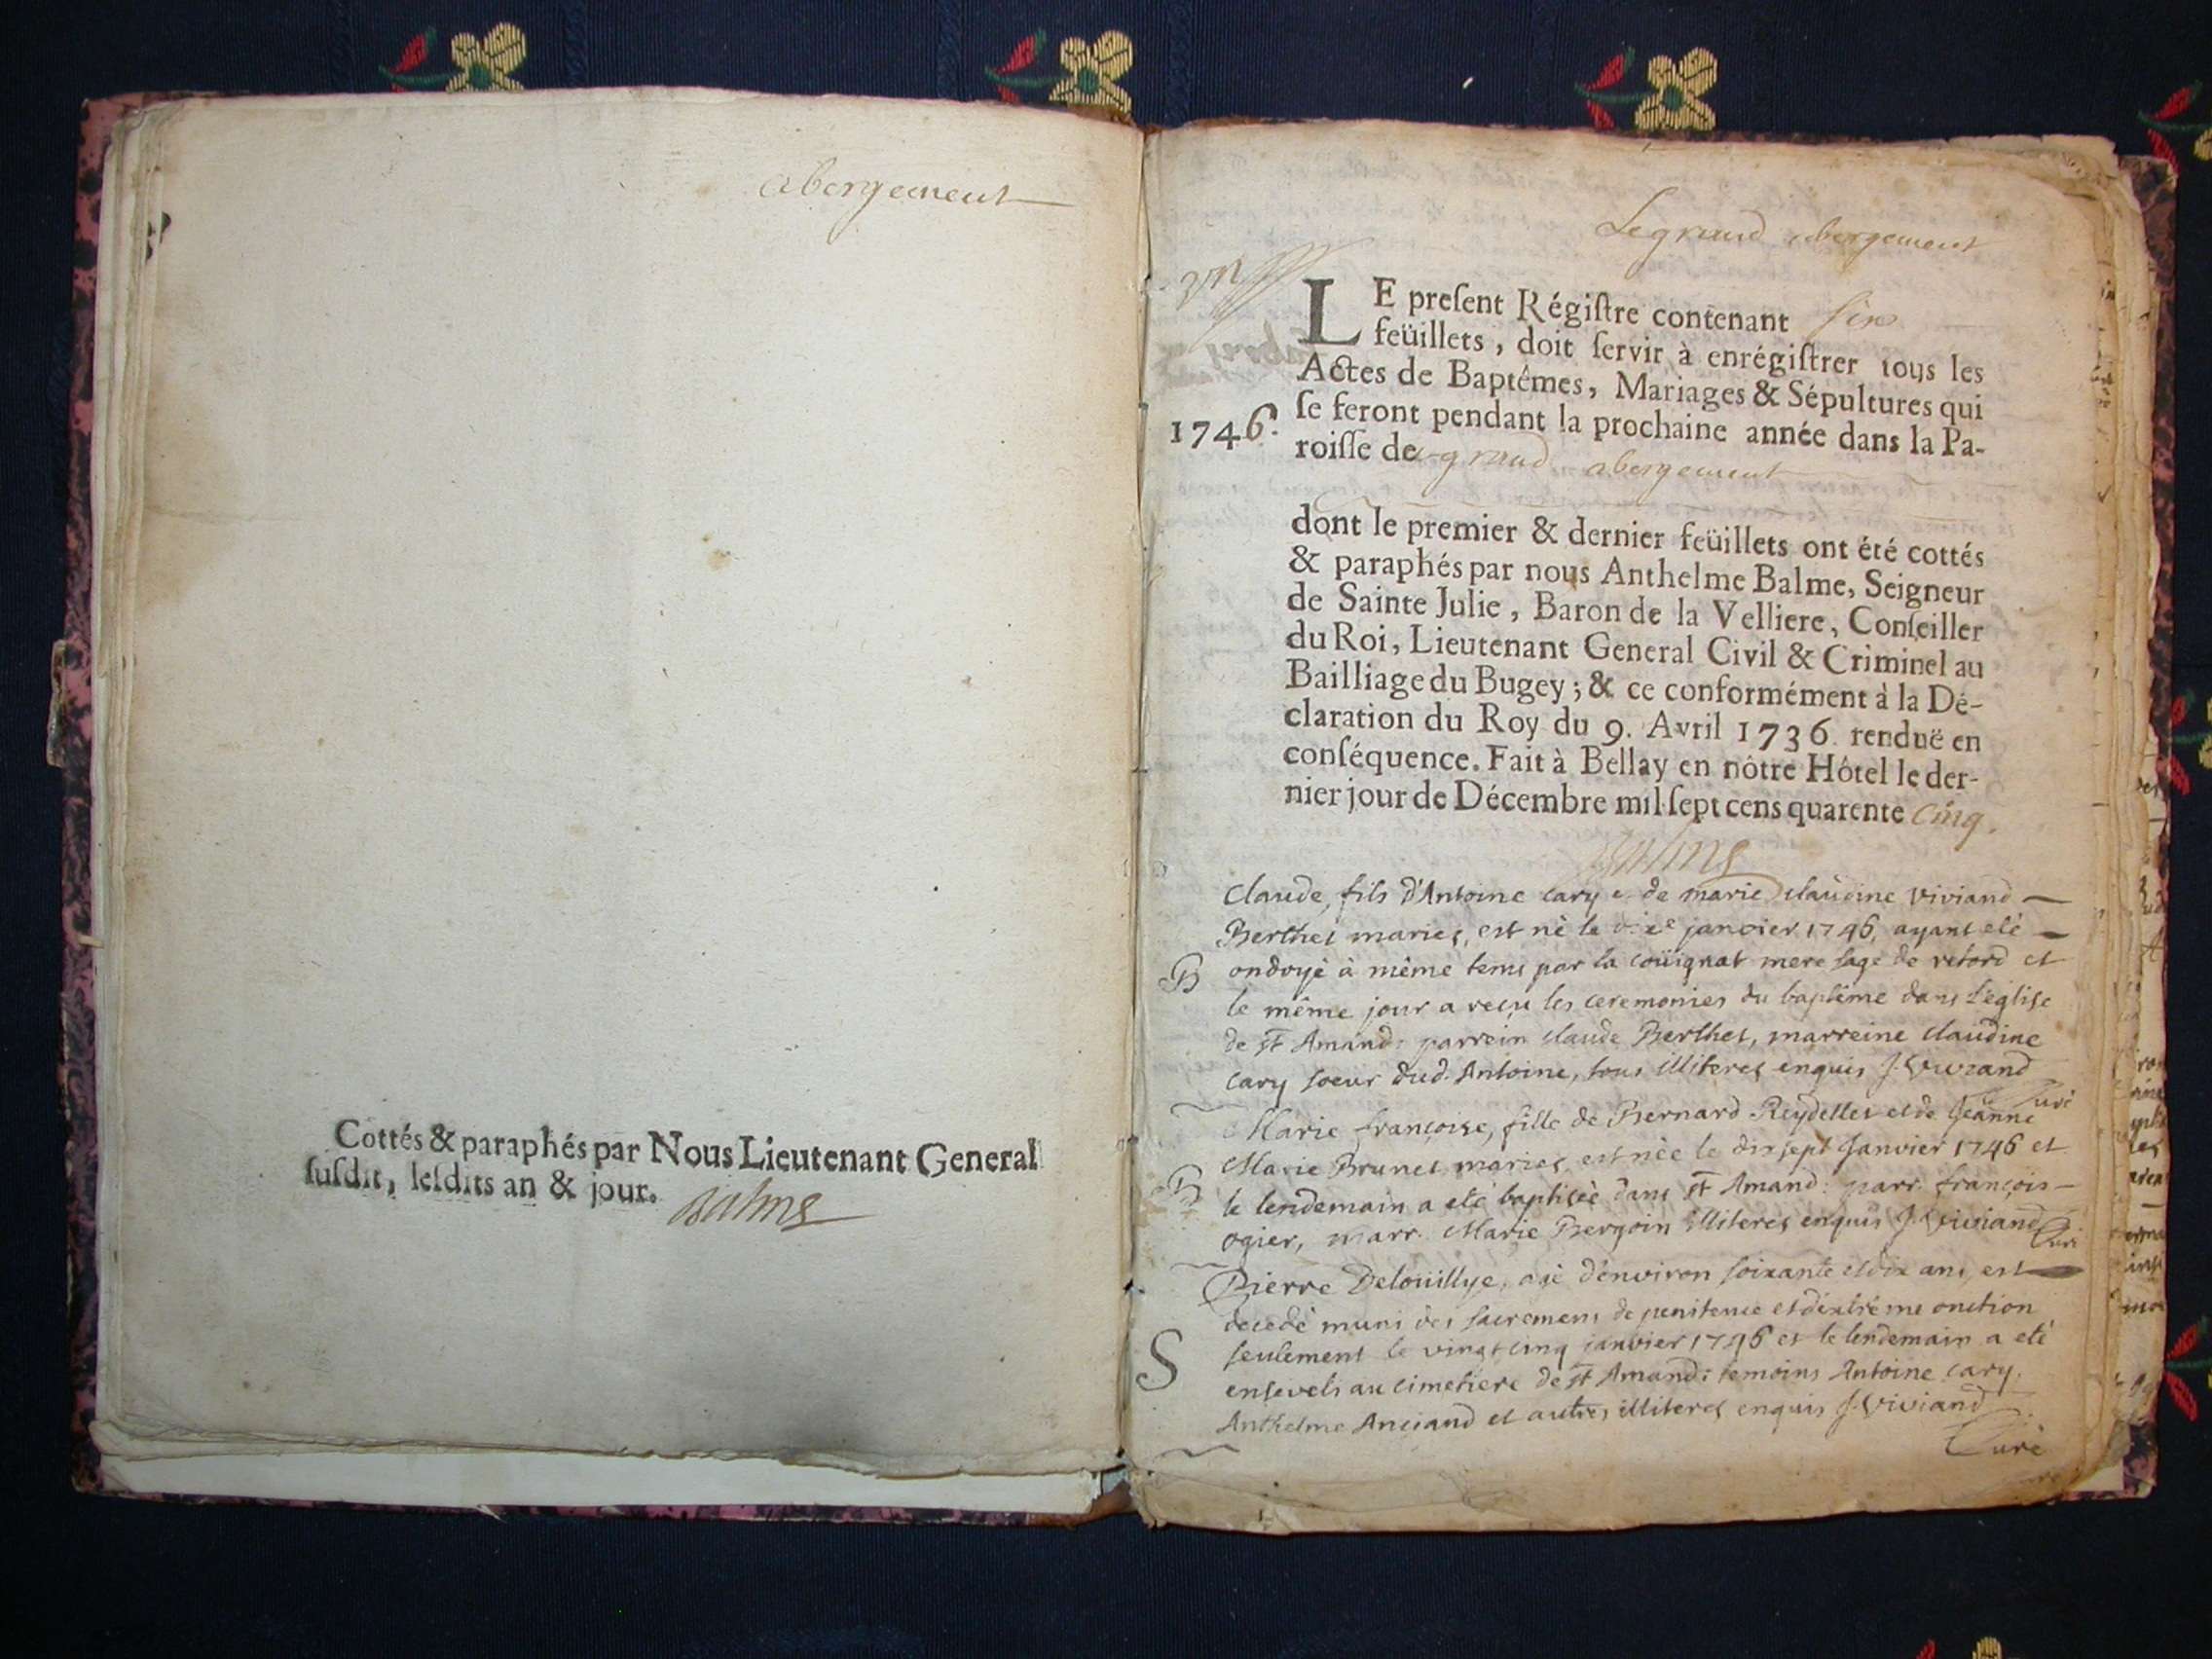 abergement
Cottés & paraphés par Nous Lieutenant General
ſuſdit, leſdits an & jour.
Balme
Legrand abergement
LE preſent Régiſtre contenant ſix
feüillets, doit ſervir à enrégiſtrer tous les
Actes de Baptêmes, Mariages & Sépultures qui
1746. ſe feront pendant la prochaine année dans la Pa-
roiſſe de grand abergement
dont le premier & dernier feüillets ont été cottés
& paraphés par nous Anthelme Balme, Seigneur
de Sainte Julie, Baron de la Velliere, Conſeiller
du Roi, Lieutenant General Civil & Criminel au
Bailliage du Bugey; & ce conformément à la Dé-
claration du Roy du 9. Avril 1736. renduë en
conſéquence. Fait à Bellay en nôtre Hôtel le der-
nier jour de Décembre mil ſept cens quarente cinq.
Balme
Claude, fils d'Antoine Cary & de marie claudine Viviand
Berthet mariés, est né le janvier 1746, ayant eté
B ondoyé à même tems par la coüignat mere sage de retord et
le même jour a reçu les ceremonies du baptême dans l'église
de st Amand: parrein claude Berthet, marreine claudine
Cary soeur dud. Antoine, tous illiterés enquis J. Viviand
Curé
Marie françoise, fille de Bernard Reydellet et de Jeanne
Marie Brunet mariés est née le dixsept Janvier 1746 et
B le lendemain a eté baptisée dans st Amand: parr. françois
ogier, marr. Marie Bergoin illiterés enquis J. Viviand
Curé
Pierre Deloüillye, agé d'environ soixante et dix ans est
decedé muni des sacremens de penitence et d'extrême onction
S seulement le vingt cinq janvier 1746 et le lendemain a eté
enseveli au cimetiere de st Amand: temoins Antoine Cary,
Anthelme Anciand et autres illiterés enquis J. Viviand
Curé